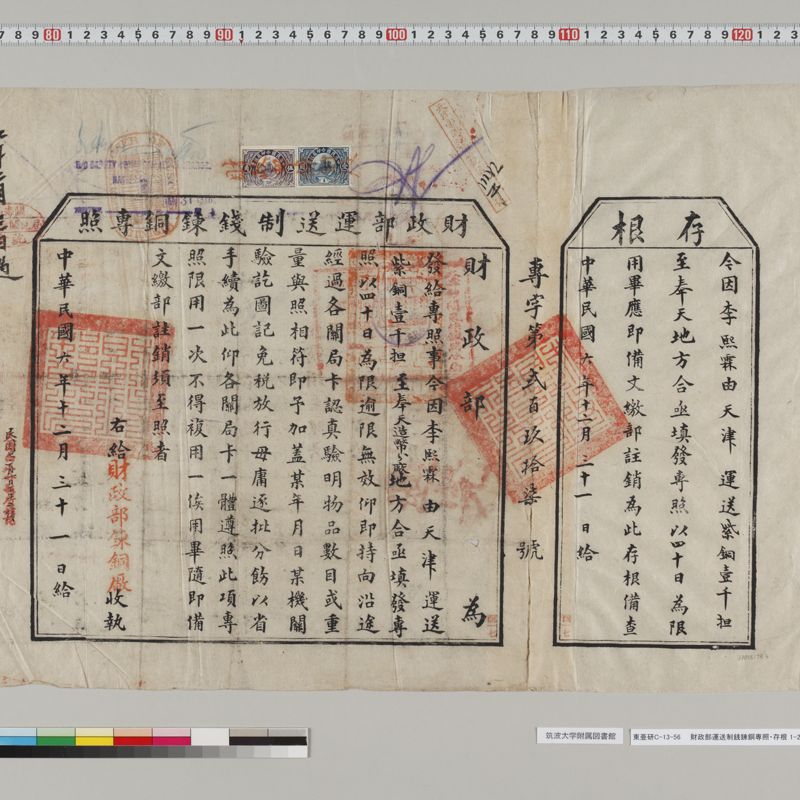 存根
今因李熙霖由天津運送紫銅壹千担
至奉天地方合亟填發專照以四十日為限
用畢應即備文繳部註銷為此存根備查
中華民國六年十二月三十一日給
專字第貳百玖拾柒號
財政部運送制錢鍊銅專照
財政部為
發給專照事今因李熙霖由天津運送
紫銅壹千担至奉天造幣分廠地方合亟填發專
照以四十日為限逾限無效仰即持向沿途
經過各關局卡認真驗明物品數目或重
量與照相符即予加蓋某年月日某機關
驗訖圖記免稅放行毋庸逐批分飭以省
手續為此仰各關局卡一體遵照此項專
照限用一次不得複用一俟用畢隨即備
文繳部註銷須至照者
右給財政部鍊銅廠收執
中華民國六年十二月三十一日給
筑波大学附属図書館
東亜研C-13-56 財政部運送制銭錬銅専照・存根 1-2